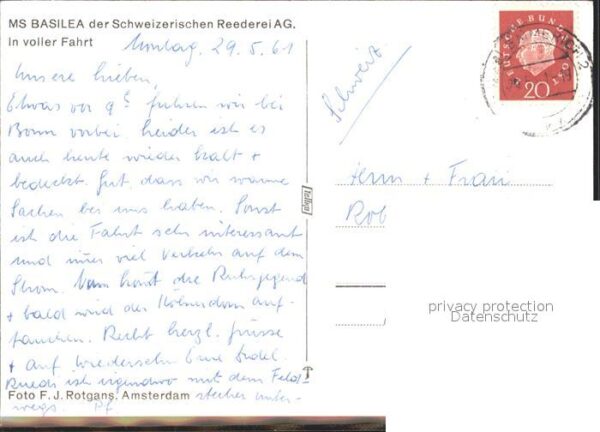 MS BASILEA der Schweizerischen Reederei AG.
In voller Fahrt
Montag, 29.5.61
Unsere Lieben,
Etwas vor 9 fuhren wir bei
Bonn vorbei leider ist es
auch heute wieder kalt +
bedeckt. Gut, dass wir warme
Sachen bei uns haben. Sonst
ist die Fahrt sehr interessant
und immer viel Verkehr auf dem
Strom. Nun kommt die Ruhrgegend
+ bald wird der Kölnerdom auf-
tauchen. Recht herzl. Grüsse
+ auf Wiedersehn Eure
Ruedi ist irgendwo mit dem Feld-
stecher unter-
wegs.
Foto F. J. Rotgans, Amsterdam
tellga
Schweiz
DEUTSCHE BUNDESPOST
20
Herrn + Frau
Rob
privacy protection
Datenschutz